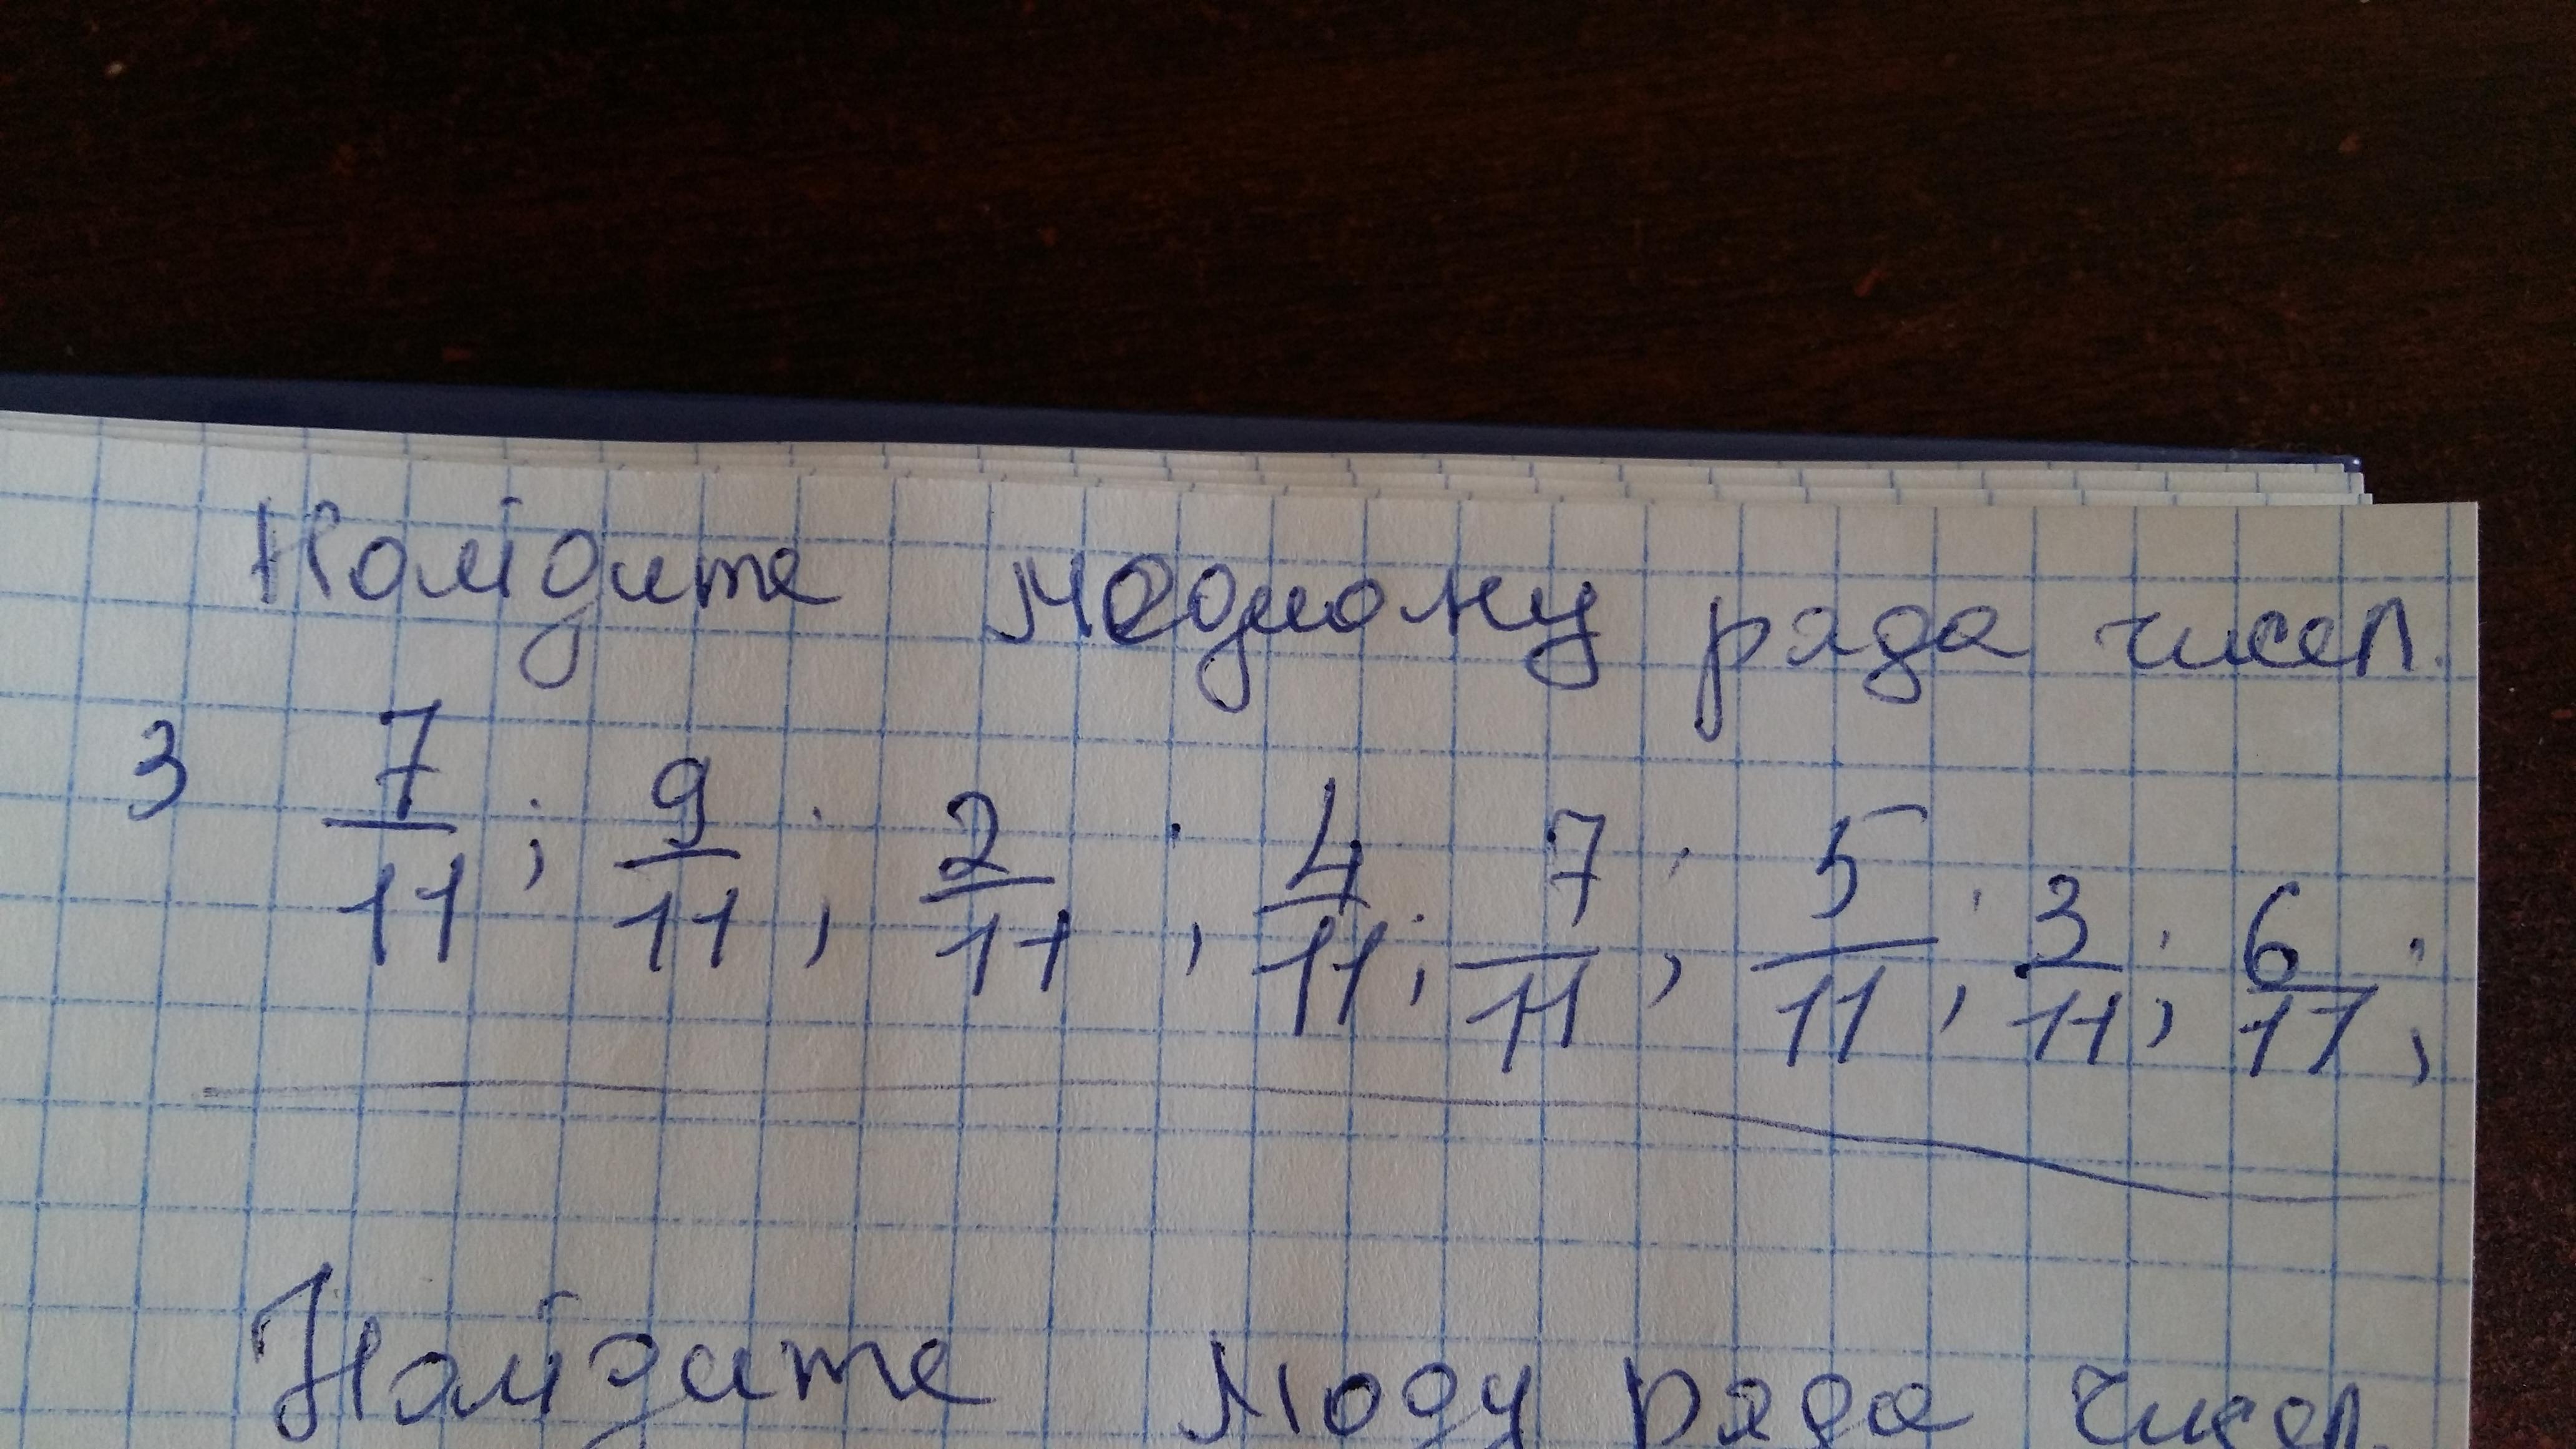 Найдите медиану ряда чисел.
3 7/11 ; 9/11 ; 2/11 ; 4/11 ; 7/11 ; 5/11 ; 3/11 ; 6/11 ;
Найдите моду ряда чисел